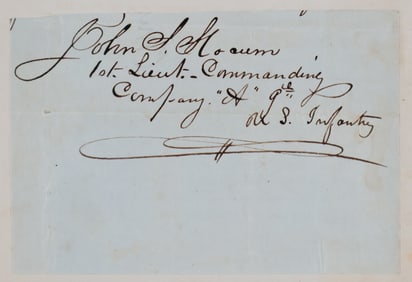 John S. Slocum
1st. Lieut. - Commanding
Company. "A" 9th
U S. Infantry